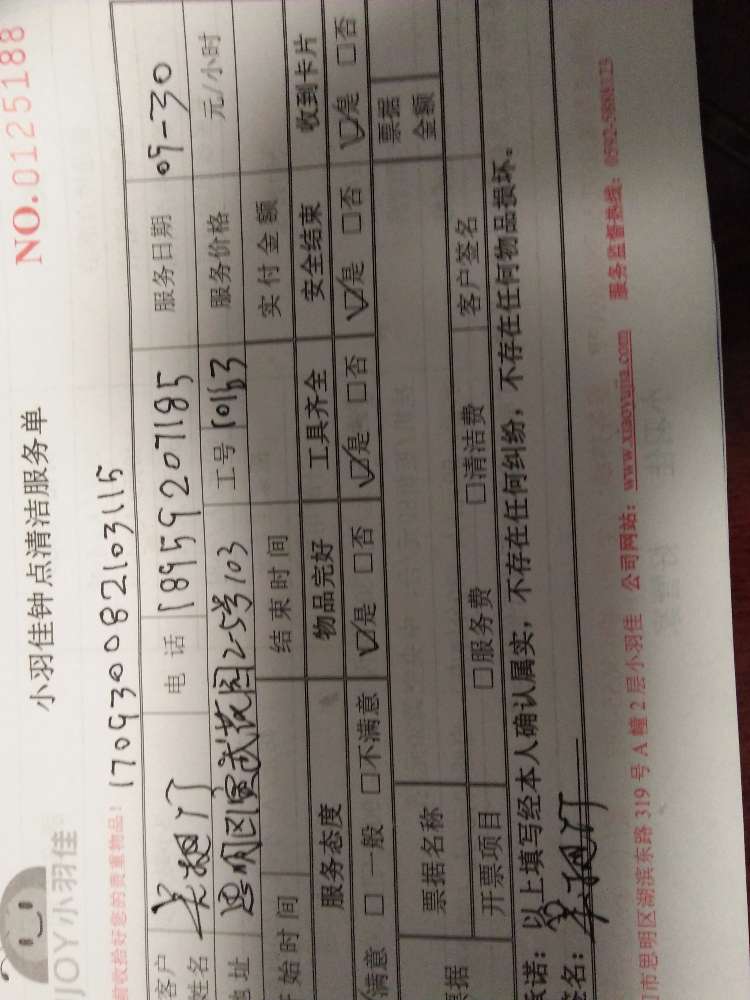 JOY小羽佳
小羽佳钟点清洁服务单
NO.0125188
前收拾好您的贵重物品!
170930082103115
客户姓名
电话 18959207185 服务日期 09-30
地址 思明区 25号103 工号 10163 服务价格 元/小时
开始时间 结束时间 实付金额
服务态度 物品完好 工具齐全 安全结束 收到卡片
满意 □一般 □不满意 ☑是 □否 ☑是 □否 ☑是 □否 ☑是 □否
票据 票据名称 票据金额
开票项目 □服务费 □清洁费 客户签名
承诺：以上填写经本人确认属实，不存在任何纠纷，不存在任何物品损坏。
签名：
市思明区湖滨东路319号A幢2层小羽佳 公司网站：www.xiaoyujia.com 服务监督热线：0592-5888123